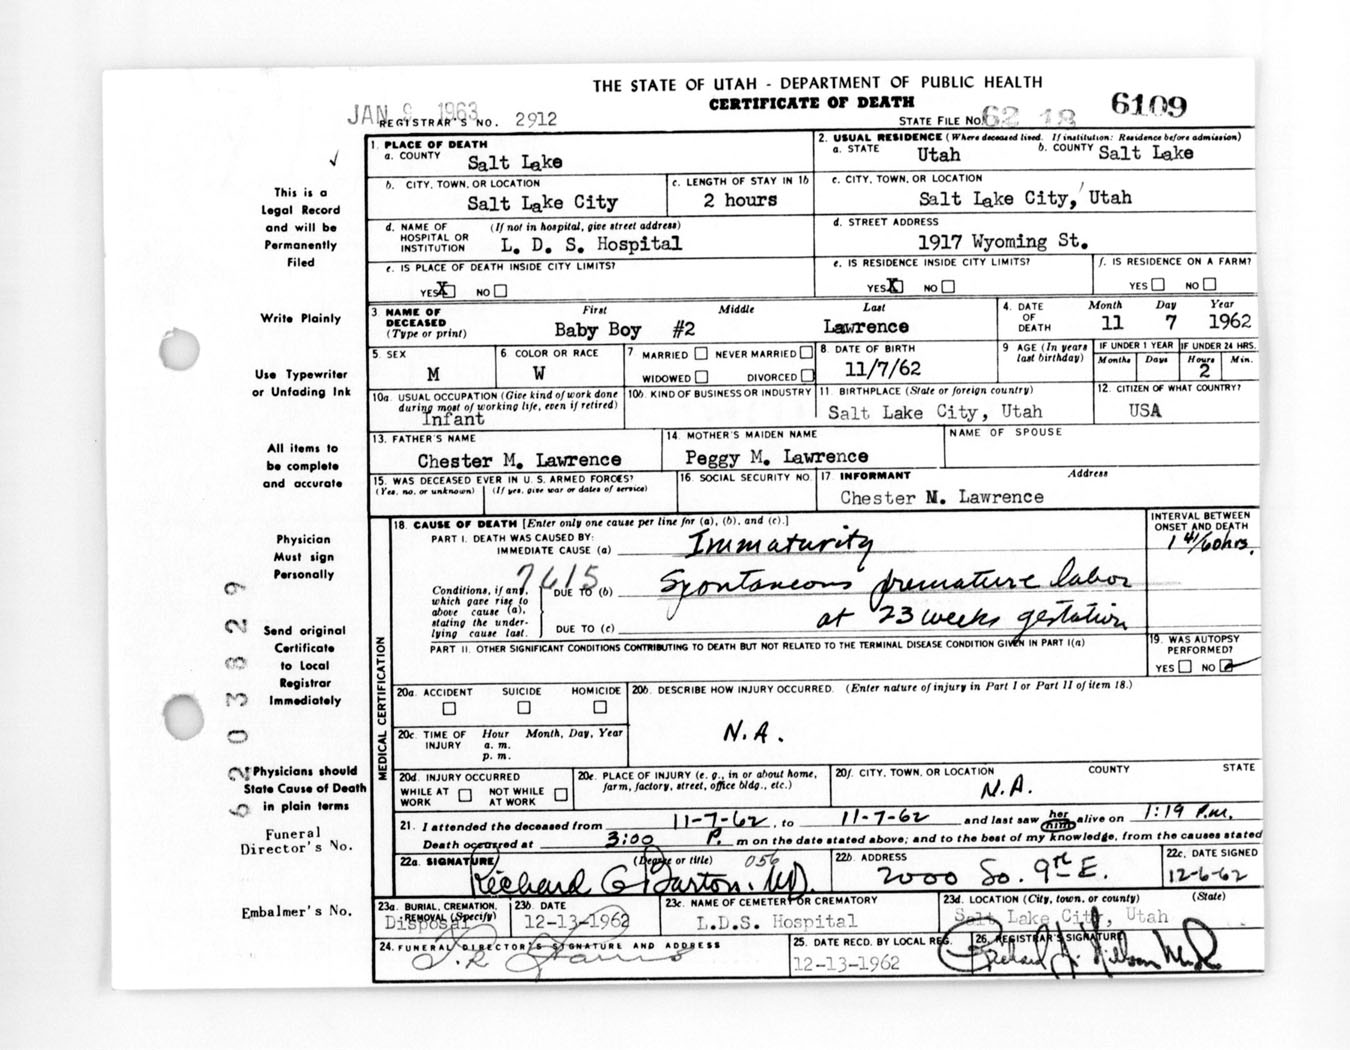 THE STATE OF UTAH - DEPARTMENT OF PUBLIC HEALTH
CERTIFICATE OF DEATH
JAN 9 1963
REGISTRAR'S NO. 2912
STATE FILE NO. 62 18 6109
1. PLACE OF DEATH
a. COUNTY Salt Lake
2. USUAL RESIDENCE (Where deceased lived. If institution: Residence before admission)
a. STATE Utah b. COUNTY Salt Lake
b. CITY, TOWN, OR LOCATION Salt Lake City
c. LENGTH OF STAY IN 1b 2 hours
c. CITY, TOWN, OR LOCATION Salt Lake City, Utah
d. NAME OF HOSPITAL OR INSTITUTION (If not in hospital, give street address) L. D. S. Hospital
d. STREET ADDRESS 1917 Wyoming St.
e. IS PLACE OF DEATH INSIDE CITY LIMITS?
YES X NO
e. IS RESIDENCE INSIDE CITY LIMITS?
YES X NO
f. IS RESIDENCE ON A FARM?
YES NO
3 NAME OF DECEASED (Type or print) First Middle Last
Baby Boy #2 Lawrence
4. DATE OF DEATH Month Day Year
11 7 1962
5. SEX M
6 COLOR OR RACE W
7 MARRIED NEVER MARRIED
WIDOWED DIVORCED
8 DATE OF BIRTH 11/7/62
9 AGE (In years last birthday)
IF UNDER 1 YEAR Months Days
IF UNDER 24 HRS. Hours Min.
2
10a. USUAL OCCUPATION (Give kind of work done during most of working life, even if retired)
Infant
10b. KIND OF BUSINESS OR INDUSTRY
11 BIRTHPLACE (State or foreign country)
Salt Lake City, Utah
12. CITIZEN OF WHAT COUNTRY?
USA
13. FATHER'S NAME
Chester M. Lawrence
14. MOTHER'S MAIDEN NAME
Peggy M. Lawrence
NAME OF SPOUSE
15. WAS DECEASED EVER IN U.S. ARMED FORCES?
(Yes, no, or unknown) (If yes, give war or dates of service)
16. SOCIAL SECURITY NO.
17. INFORMANT Address
Chester M. Lawrence
MEDICAL CERTIFICATION
18. CAUSE OF DEATH [Enter only one cause per line for (a), (b), and (c).]
INTERVAL BETWEEN ONSET AND DEATH
PART I. DEATH WAS CAUSED BY:
IMMEDIATE CAUSE (a) Immaturity
1 41/60 hrs.
7615
Conditions, if any, which gave rise to above cause (a), stating the underlying cause last.
DUE TO (b) Spontaneous premature labor
at 23 weeks gestation
DUE TO (c)
PART II. OTHER SIGNIFICANT CONDITIONS CONTRIBUTING TO DEATH BUT NOT RELATED TO THE TERMINAL DISEASE CONDITION GIVEN IN PART I(a)
19. WAS AUTOPSY PERFORMED?
YES NO
20a. ACCIDENT SUICIDE HOMICIDE
20b. DESCRIBE HOW INJURY OCCURRED. (Enter nature of injury in Part I or Part II of item 18.)
N.A.
20c. TIME OF INJURY Hour Month, Day, Year
a. m.
p. m.
20d. INJURY OCCURRED
WHILE AT WORK NOT WHILE AT WORK
20e. PLACE OF INJURY (e. g., in or about home, farm, factory, street, office bldg., etc.)
20f. CITY, TOWN, OR LOCATION COUNTY STATE
N.A.
21. I attended the deceased from 11-7-62, to 11-7-62 and last saw her him alive on 1:19 P.m.
Death occurred at 3:00 P. m on the date stated above; and to the best of my knowledge, from the causes stated
22a. SIGNATURE (Degree or title) 056
Richard G Barton. M.D.
22b. ADDRESS
2000 So. 9th E.
22c. DATE SIGNED
12-6-62
23a. BURIAL, CREMATION, REMOVAL (Specify)
Disposal
23b. DATE
12-13-1962
23c. NAME OF CEMETERY OR CREMATORY
L.D.S. Hospital
23d. LOCATION (City, town, or county) (State)
Salt Lake City, Utah
24. FUNERAL DIRECTOR'S SIGNATURE AND ADDRESS
25. DATE RECD. BY LOCAL REG.
12-13-1962
26. REGISTRAR'S SIGNATURE
This is a
Legal Record
and will be
Permanently
Filed
Write Plainly
Use Typewriter
or Unfading Ink
All items to
be complete
and accurate
Physician
Must sign
Personally
Send original
Certificate
to Local
Registrar
Immediately
Physicians should
State Cause of Death
in plain terms
Funeral
Director's No.
Embalmer's No.